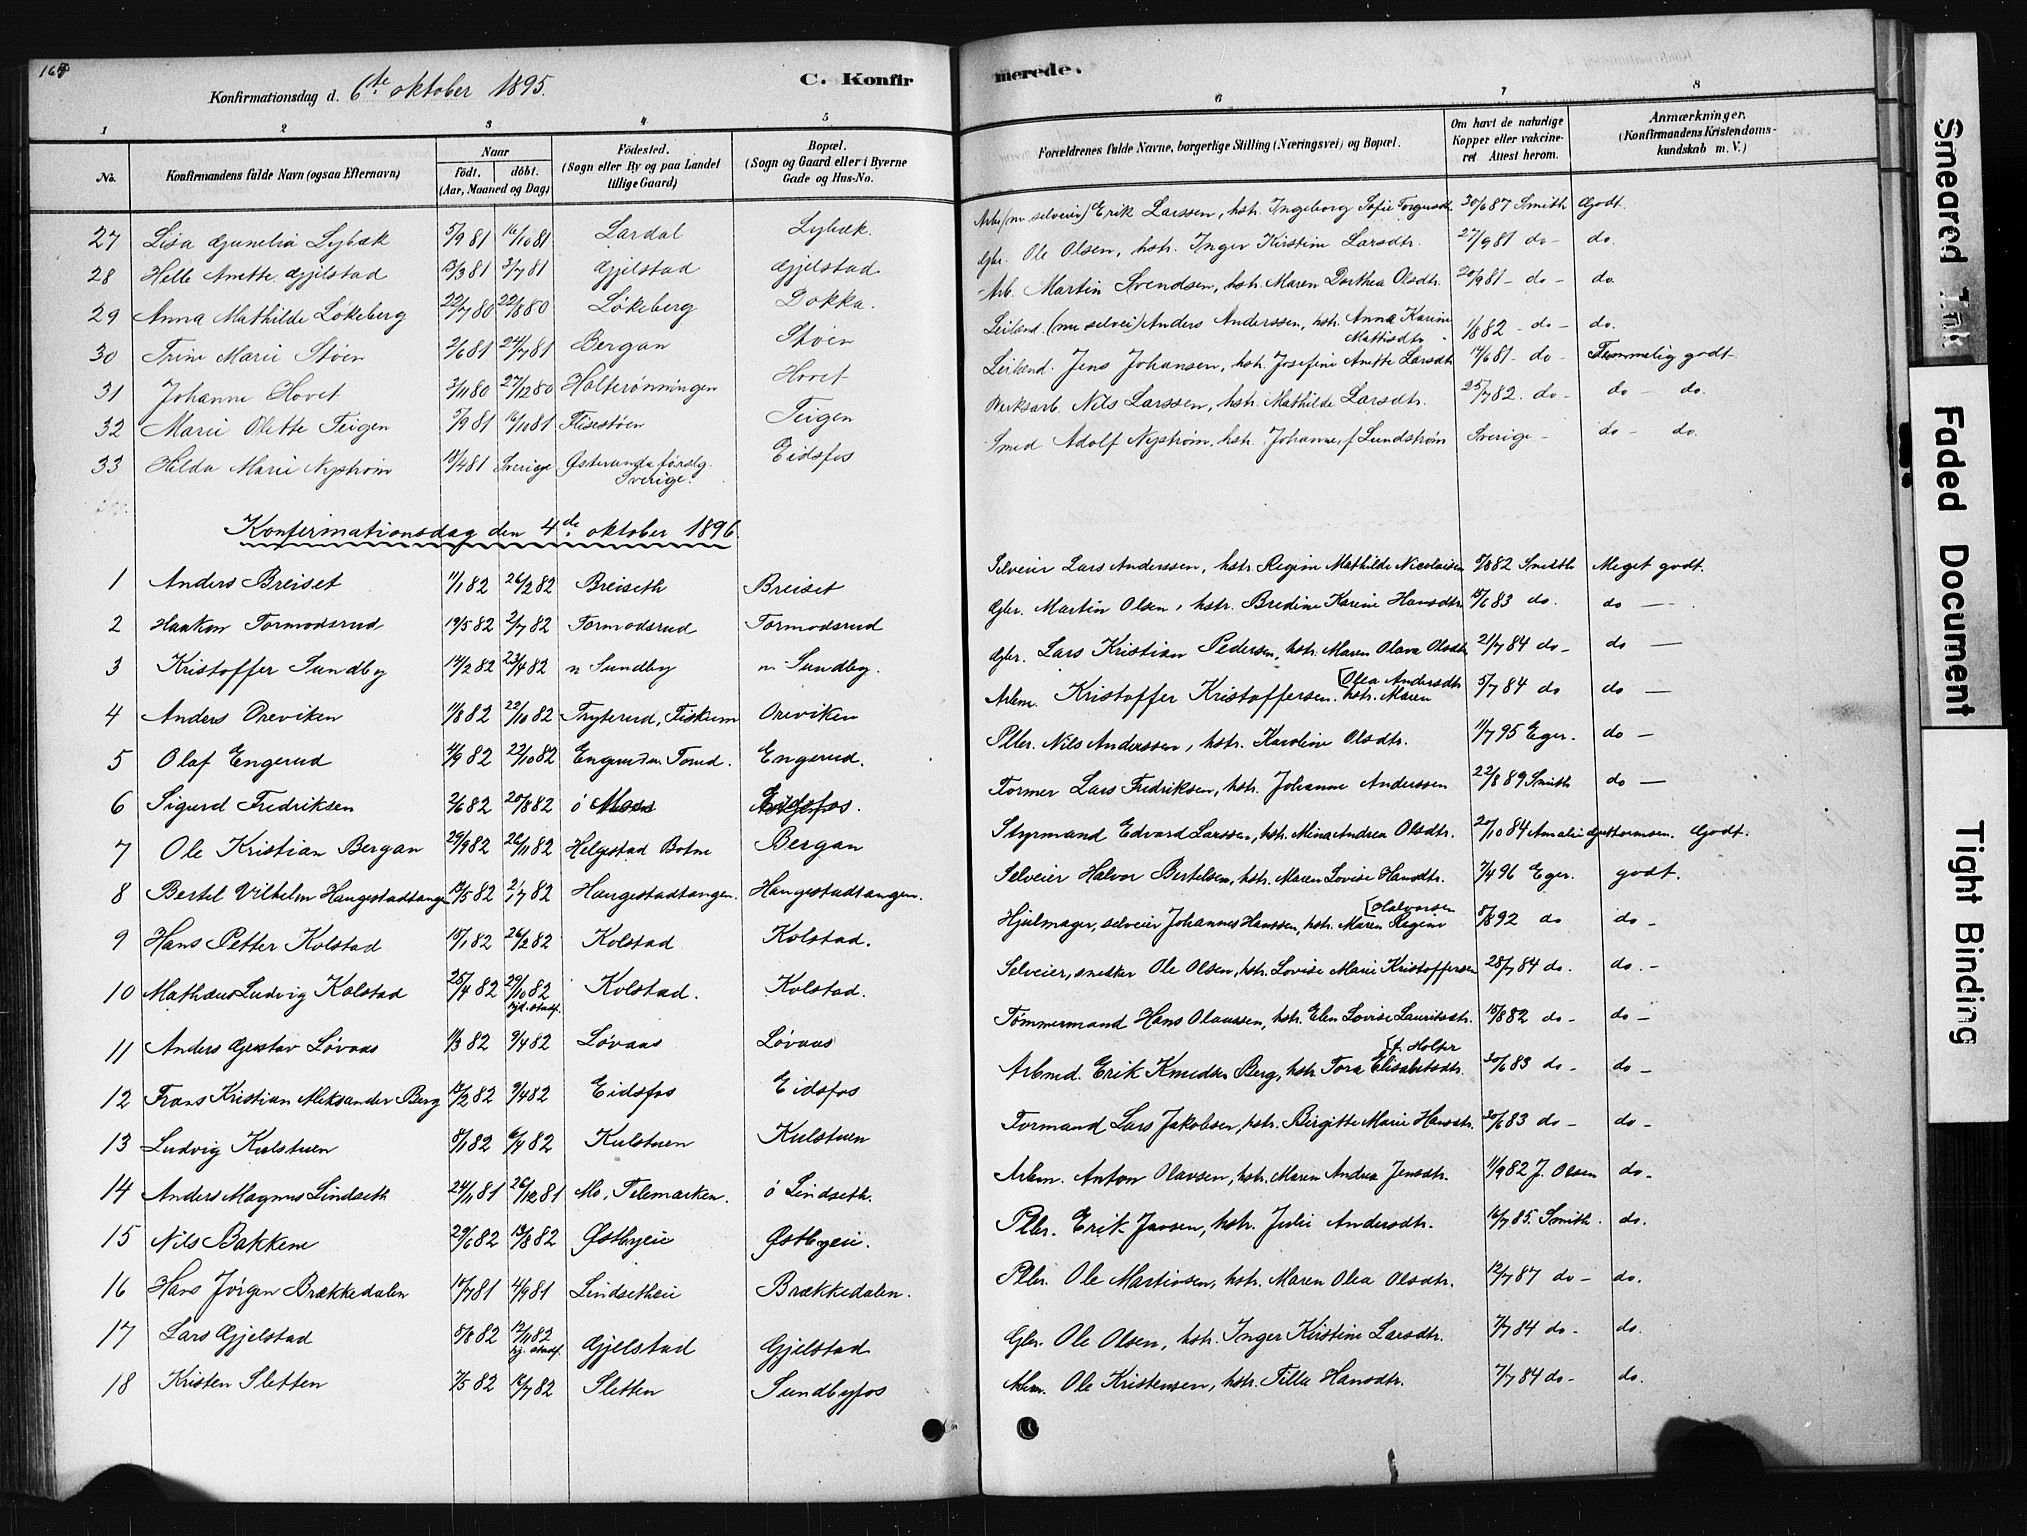 Konfirmationsdag d. 6te oktober 1895.
C. Konfir merede.
1 2 3 4 5 6 7 8
No. Konfirmandens fulde Navn (ogsaa Efternavn) Naar födt. döbt. (Aar, Maaned og Dag) Födested. (Sogn eller By og paa Landet tillige Gaard) Bopæl. (Sogn og Gaard eller i Byerne Gade og Hus-No. Forældrenes fulde Navne, borgerlige Stilling (Næringsvei) og Bopæl. Om havt de naturlige Kopper eller vakcineret Attest herom. Anmærkninger. (Konfirmandens Kristendomskundskab m. V.)
27 Lisa Gunelia Lybæk 5/9 81 16/10 81 Lardal Lybæk. Arb. (nu selveier) Erik Larssen, hstr. Ingeborg Sofie 30/6 87 Smith Godt.
28 Helle Anette Gjelstad 13/3 81 3/7 81 Gjelstad Gjelstad Gbr. Ole Olsen, hstr. Inger Kirstine Larsdtr. 27/9 81 do - do.
29 Anna Mathilde Lökeberg 22/7 80 22/8 80 Lökeberg Dokka. Arb. Martin Svendsen, hstr. Maren Dorthea Olsdtr. 20/9 81 - do - do.
30 Trine Marie Støen 2/6 81 24/7 81 Bergan Støen Leilend. (nu selvei) Anders Anderssen, hstr. Anna Karine Mattisdtr. 1/8 82 - do - do.
31 Johanne Hovet 3/11 80 27/12 80 Holterönningen Hovet Leilend. Jens Johansen, hstr. Josefine Anette Larsdtr 14/6 81 - do - Temmelig godt
32 Marie Olette Teigen 5/9 81 16/10 81 Flisestöen Teigen Verksarb. Nils Larssen, hstr. Mathilde Larsdtr. 25/7 82. do - do - do.
33 Hilda Marie Nystrøm 18/4 81 Sverige Østerunda førslg. Sverige. Eidsfos Smed Adolf Nystrøm, hstr. Johanne f. Lundstrøm Sverige - do - do.
Konfirmationsdag den 4de oktober 1896.
1 Anders Breiset 11/1 82 26/2 82 Breiseth Breiset Selveier Lars Anderssen, hstr. Regine Mathilde Nicolaisen 9/8 82 Smith Meget godt.
2 Haakon Tormodsrud 19/5 82 2/7 82 Tormodsrud Tormodsrud Gbr. Martin Olsen, hstr. Bredine Karine Hansdtr. 15/6 83 do. do -
3 Kristoffer Sundby 14/2 82 23/4 82 n Sundby n. Sundby. Gbr. Lars Kristian Pedersen, hstr. Maren Olava Olsdtr 21/7 84 do - do -
4 Anders Oreviken 11/8 82 22/10 82 Tryterud, Fiskum Oreviken Arbm. Kristoffer Kristoffersen. hstr. Maren [Olea Andersdtr 5/7 84 do do -
5 Olaf Engerud 4/9 82 22/10 82 Engerud Engerud. Pller. Nils Anderssen, hstr. Karoline Olsdtr. 11/7 95 Eger. do -
6 Sigurd Fredriksen 2/6 82 20/8 82 ö Eidsfos. Former Lars Fredriksen, hstr. Johanne Anderssen 22/8 89 Smith do -
7 Ole Kristian Bergan 29/9 82 26/11 82 Helgestad Botne Bergan Styrmand Edvard Larssen, hstr. Mina Andrea Olsdtr. 20/10 84 Amalie Guttormsen. Godt.
8 Bertel Vilhelm Haugestadtangen 12/5 82 2/7 82 Haugestadtangen. Haugestadtangen. Selveier Halvor Bertelsen, hstr. Maren Lovise Hansdtr. 7/4 96 Eger. godt.
9 Hans Petter Kolstad 15/1 82 26/2 82 Kolstad Kolstad. Hjulmager, selveier Johannes Hanssen, hstr. Maren Regine [Halvorsen 8/8 92 do do -
10 Mathæus Ludvig Kolstad 25/4 82 29/10 82 hjd. stadf. Kolstad. Kolstad. Selveier, snedker Ole Olsen, hstr. Lovise Marie Kristoffersen 28/7 84 do. do. -
11 Anders Gustav Lövaas 11/3 82 9/4 82 Lövaas Lövaas Tömmermand Hans Olaussen, hstr. Elen Lovise Lauritsdtr. 15/8 82 do - do -
12 Frans Kristian Aleksander Berg 12/2 82 9/4 82 Eidsfos Eidsfos Arbmd. Erik Knudsen Berg, hstr. Tora Elisabetsdtr. [f. Holter 30/6 83 do - do -
13 Ludvig Kulstuen 8/1 82 6/4 82 Kulstuen Kulstuen Formand Lars Jakobsen, hstr. Birgitte Marie Hansdtr. 30/6 83 do - do -
14 Anders Magnus Lindseth 24/11 81 26/12 81 Mo, Telemarken. ö Lindseth. Arbm. Anton Olavsen, hstr. Maren Andrea Jensdtr. 11/9 82 J. Olsen do -
15 Nils Bakkene 29/6 82 13/8 82 Østbyeie Østbyeie. Pller. Erik Jansen, hstr. Julie Andersdtr. 16/7 85. Smith. do.
16 Hans Jörgen Brækkedalen 10/7 81 4/9 81 Lindsetheie Brækkedalen. Pller. Ole Martinsen, hstr. Maren Olea Olsdtr. 12/7 87 do - do.
17 Lars Gjelstad 5/8 82 12/11 82 hj. stadf. Gjelstad Gjelstad Gbr. Ole Olsen, hstr. Inger Kirstine Larsdtr. 7/7 84 do - do.
18 Kristen Sletten 7/5 82 16/7 82 Sletten Sundbyfos Arbm. Ole Kristensen, hstr. Tilla Hansdtr. 7/7 84 do - do.
Smeared Ink
Faded Document
Tight Binding